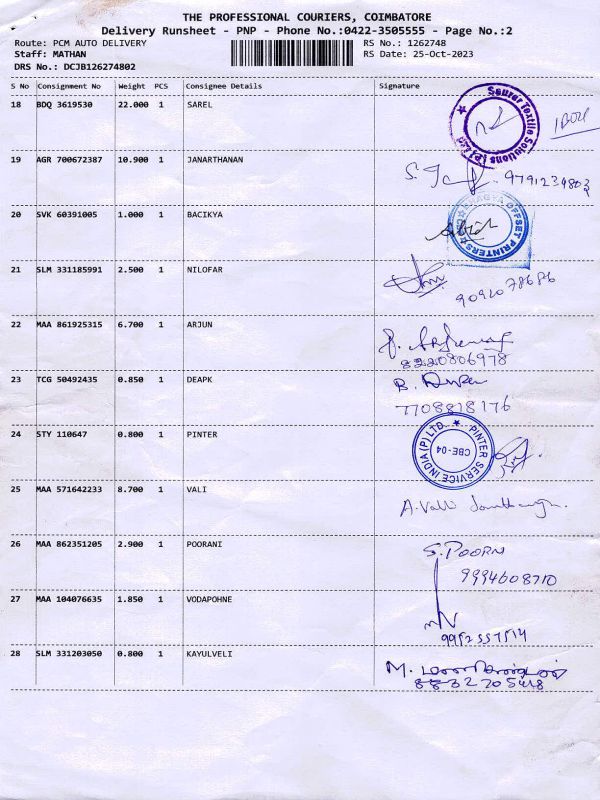 THE PROFESSIONAL COURIERS, COIMBATORE
Delivery Runsheet - PNP - Phone No.:0422-3505555 - Page No.:2
Route: PCM AUTO DELIVERY RS No.: 1262748
Staff: MATHAN RS Date: 25-Oct-2023
DRS No.: DCJB126274802
S No Consignment No Weight PCS Consignee Details Signature
18 BDQ 3619530 22.000 1 SAREL
Saurer Textile Solutions (P) Ltd
19 AGR 700672387 10.900 1 JANARTHANAN
9791239803
20 SVK 60391005 1.000 1 BACIKYA
OFFSET PRINTERS
21 SLM 331185991 2.500 1 NILOFAR
9092078686
22 MAA 861925315 6.700 1 ARJUN
8220806978
23 TCG 50492435 0.850 1 DEAPK
7708818176
24 STY 110647 0.800 1 PINTER
PINTER SERVICE INDIA (P) LTD.
CBE-04
25 MAA 571642233 8.700 1 VALI
A. Valli
26 MAA 862351205 2.900 1 POORANI
S. POORNI
9994608710
27 MAA 104076635 1.850 1 VODAPOHNE
9952557514
28 SLM 331203050 0.800 1 KAYULVELI
M.
8832705418